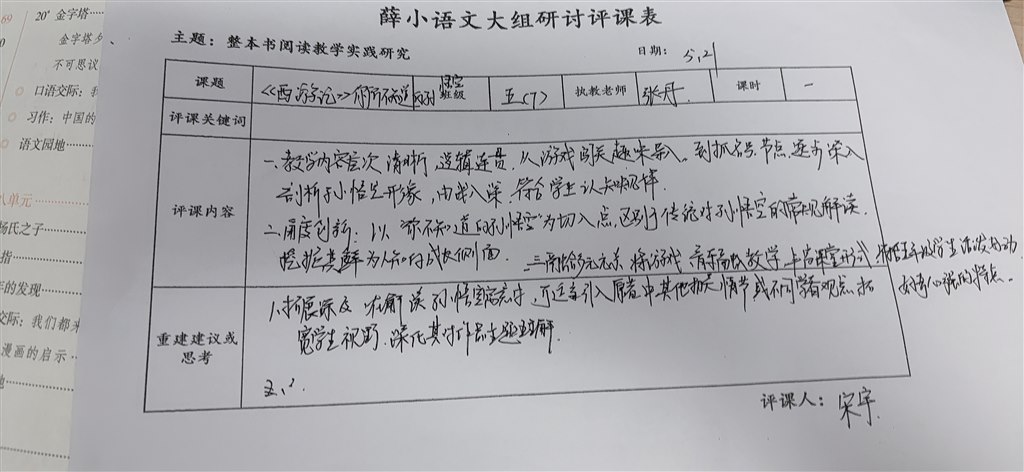 69
20 金字塔
金字塔夕
不可思议
口语交际：我
习作：中国的
语文园地
八单元
杨氏之子
指
年的发现
交际：我们都来
漫画的启示
地
薛小语文大组研讨评课表
主题：整本书阅读教学实践研究
日期： 5.21
课题 《西游记》你所不知道的孙悟空 班级 五（7） 执教老师 张丹 课时 一
评课关键词
评课内容
一、教学内容层次清晰，逻辑连贯。从游戏闯关趣味导入。到抓名号、节点，逐步深入
剖析孙悟空形象，由浅入深，符合学生认知规律
二、角度创新：以“你不知道的孙悟空”为切入点，区别于传统对孙悟空的常规解读，
挖掘其鲜为人知的成长侧面。
三、
元素 将游戏 教学 课堂形式 学生活泼好动
好奇心强的特点。
重建建议或
思考
1、拓展深度 在解读孙悟空 时，可适当引入原著中其他相关情节或不同学者观点，拓
宽学生视野，深化其对作品主题理解。
评课人： 宋宇